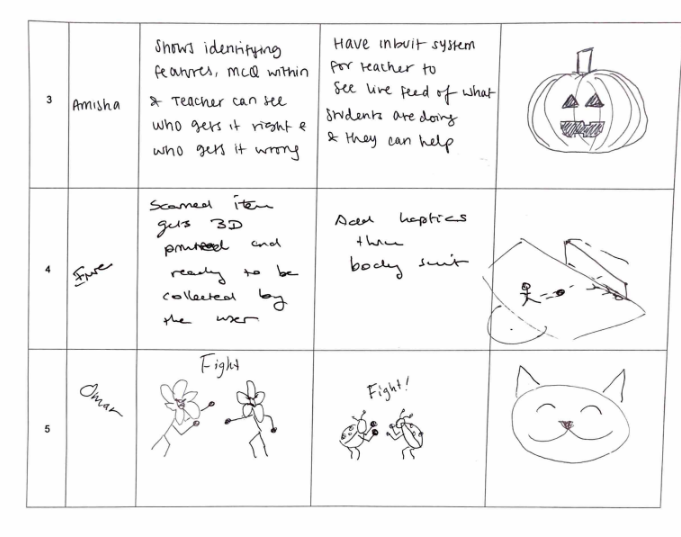 3
Amisha
Shows identifying
features, MCQ within
& Teacher can see
who gets it right &
who gets it wrong
Have inbuit system
for teacher to
see live feed of what
students are doing
& they can help
4
Scanned item
gets 3D
printed and
ready to be
collected by
the user
Add haptics
thru
body suit
5
Omar
Fight
Fight!